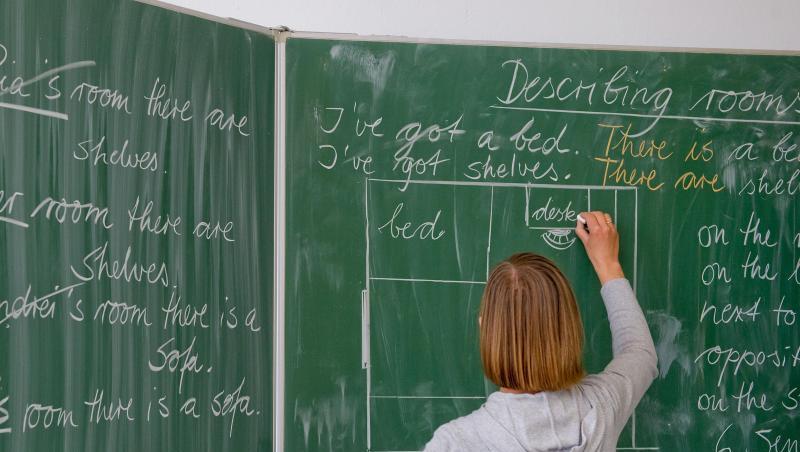 room there are
shelves.
room there are
Shelves.
room there is a
Sofa.
room there is a sofa.
Describing rooms
I've got a bed. There is a
I've got shelves. There are
bed
desk
on the
on the
next to
on the